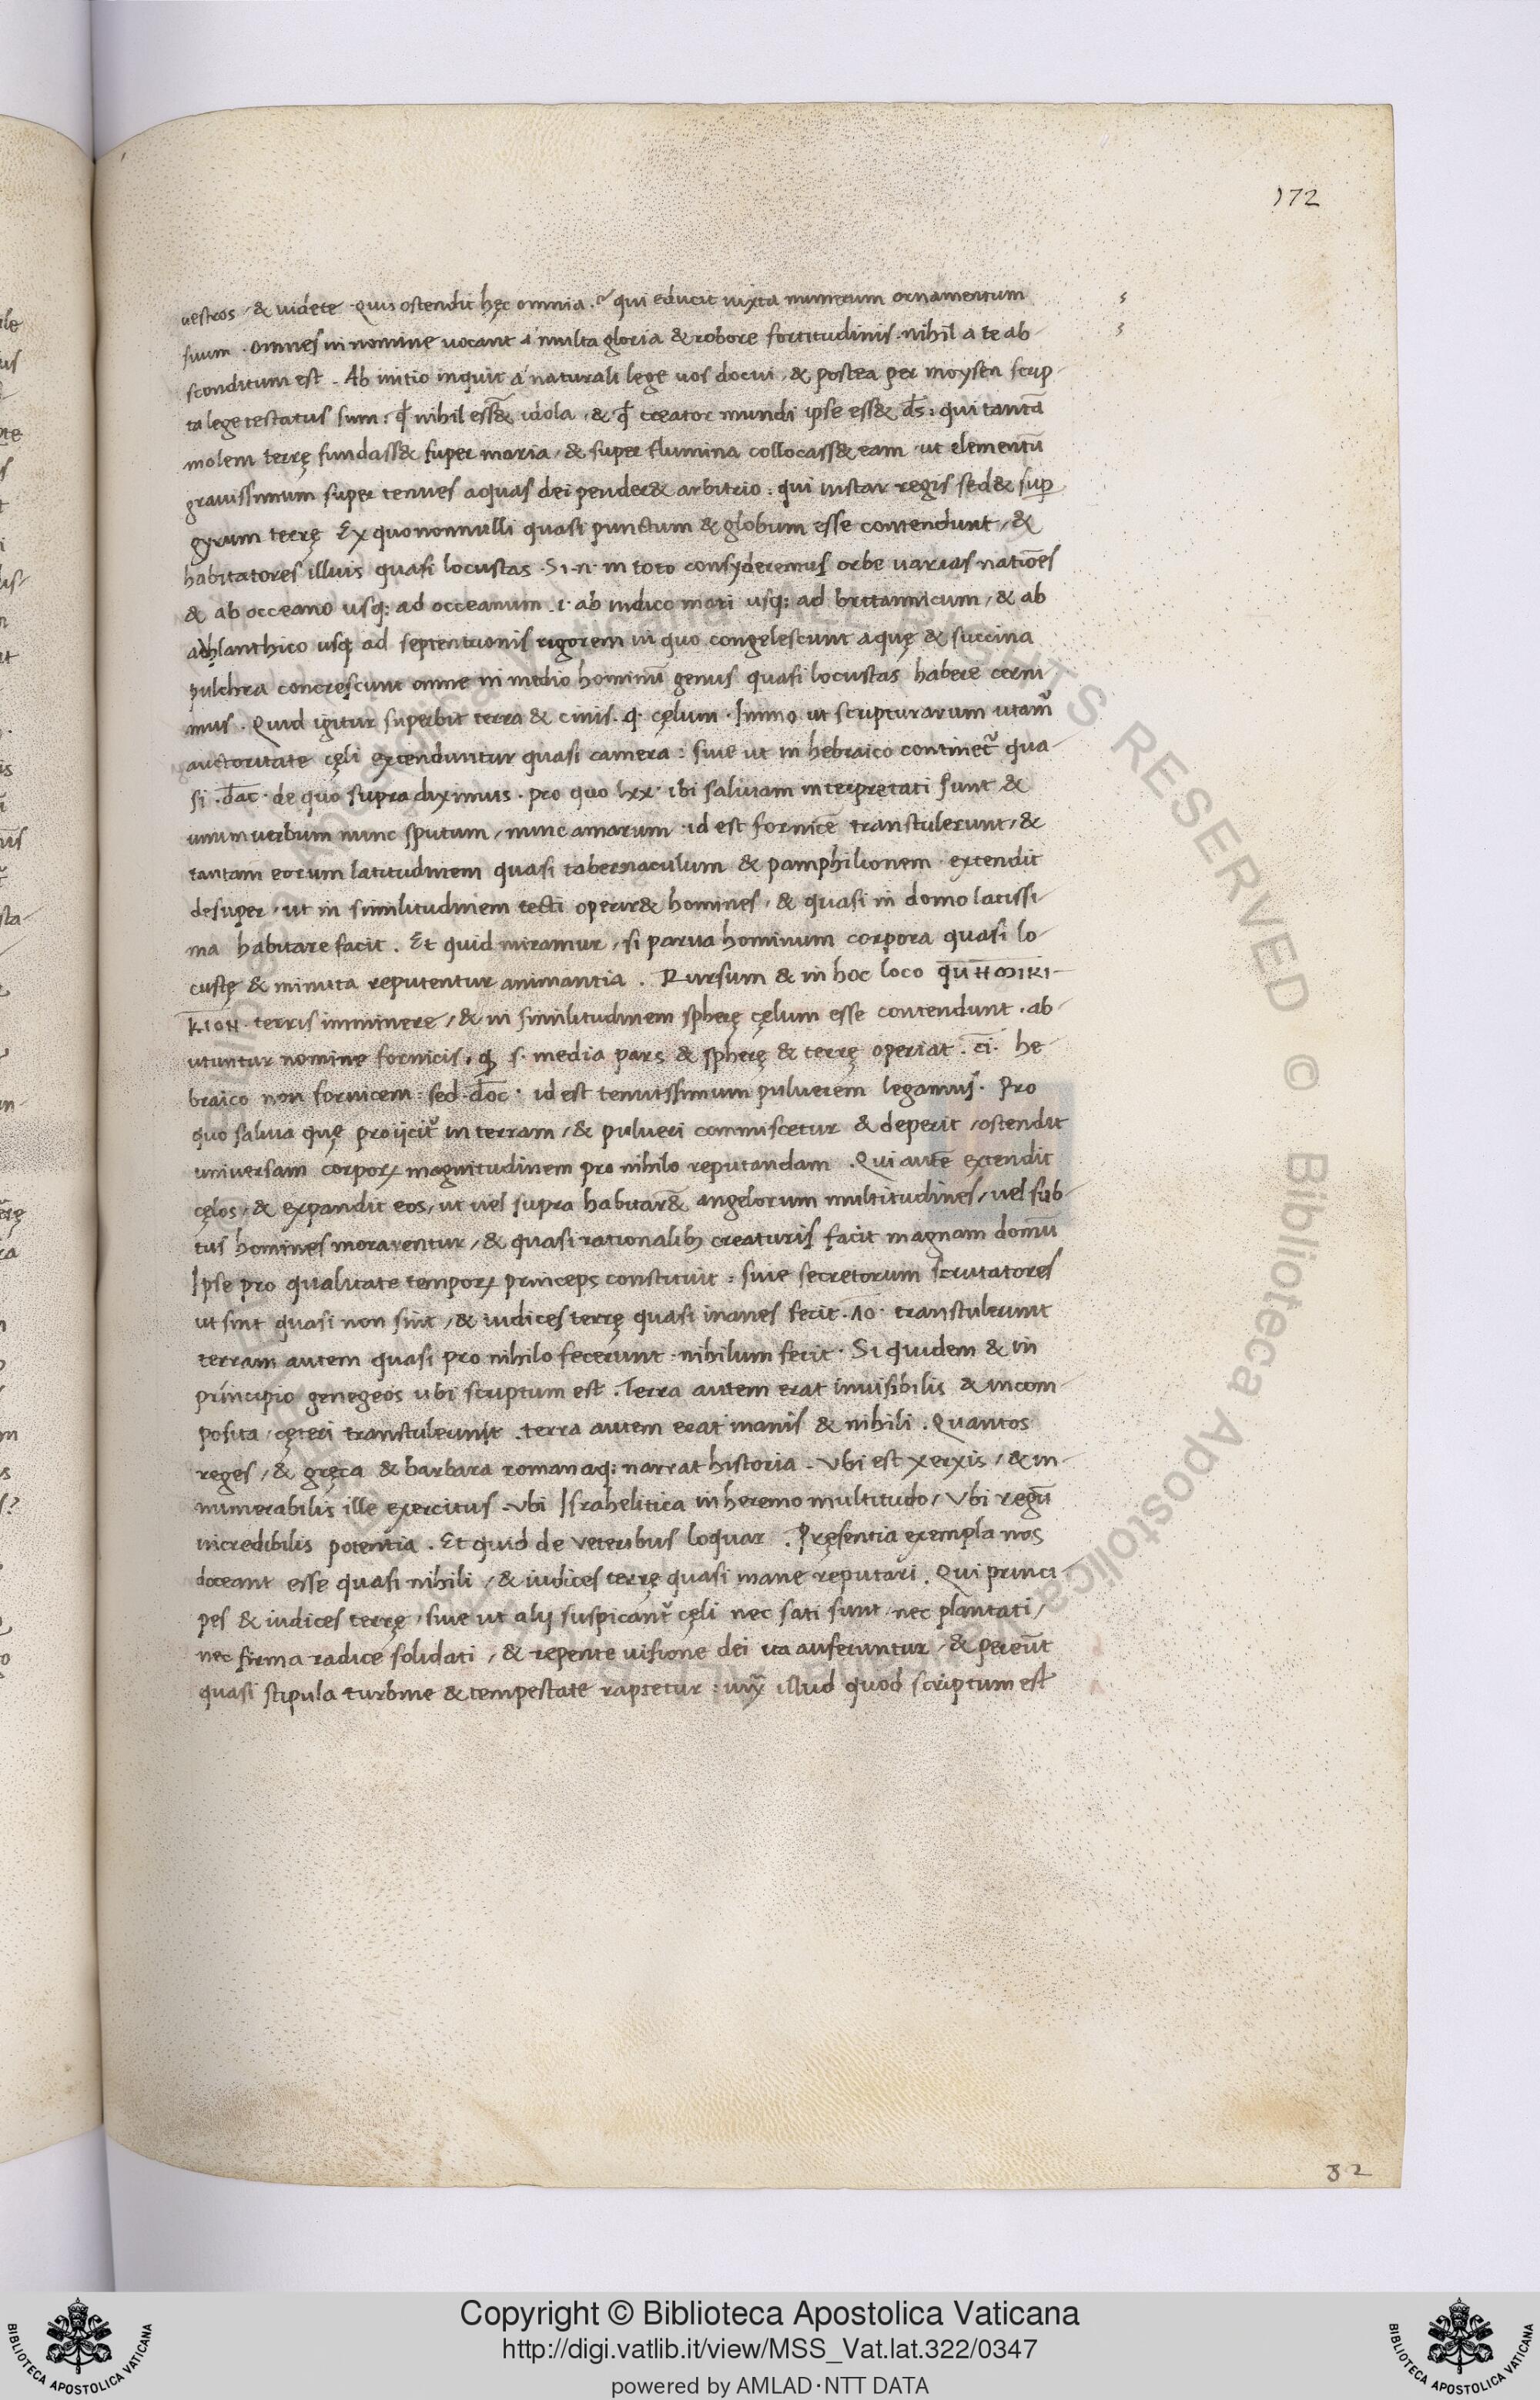 172
uestros / & uidete . Quis ostendit hęc omnia . ? qui educit iuxta numerum ornamentum
suum . omnes in nomine uocant a multa gloria & robore fortitudinis . nihil a te ab-
sconditum est . Ab initio inquit a naturali lege uos docui , & postea per moysen scrip-
ta lege testatus sum : qđ nihil ess& idola , & qđ creator mundi ipse ess& d̄s : qui tantā
molem terrę fundass& super maria , & super flumina collocass& eam , ut elementū
grauissimum super tenues aquas dei pender& arbitrio : qui instar regis sed& sup̱
gyrum terrę Ex quo nonnulli quasi punctum & globum esse contendunt , &
habitatores illius quasi locustas . Si .n. in toto consyderemus orbe uarias natiōes
& ab occeano usq; ad occeanum .i. ab indico mari usq; ad britannicum , & ab
athlanthico usq; ad septentrionis rigorem in quo congelescunt aquę & succina
pulchra concrescunt omne in medio hominū genus quasi locustas habere cerni
mus . Quid igitur superbit terra & cinis . q. cęlum . Immo ut scripturarum utamᷣ
auctoritate cęli extenduntur quasi camera : siue ut in hebraico continetᷣ qua-
si . dāc . de quo supra diximus . pro quo lxx . ibi saliuam interpretati sunt &
unum uerbum nunc sputum , nunc amarum . id est fornicē transtulerunt , &
tantam eorum latitudinem quasi tabernaculum & pamphilionem extendit
desuper , ut in similitudinem tecti operir& homines , & quasi in domo latissi-
ma habitare facit . Et quid miramur , si parua hominum corpora quasi lo-
custę & minuta reputentur animantia . Rursum & in hoc loco qui HMIKI-
KION . terris imminere , & in similitudinem spherę cęlum esse contendunt . ab-
utuntur nomine fornicis , q s. media pars & spherę & terrę operiat . cī . he-
braico non fornicem : sed . dōc . id est tenuissimum puluerem legamus . Pro
quo saliua quę proijcitᷣ in terram , & pulueri commiscetur & deperit , ostendit
universam corporꝝ magnitudinem pro nihilo reputandam . Qui autē extendit
cęlos , & expandit eos , ut uel supra habitar& angelorum multitudines , uel sub-
tus homines morarentur , & quasi rationalib; creaturis facit magnam domū
Ipse pro qualitate temporꝝ princeps constituit : siue secretorum scrutatores
ut sint quasi non sint , & iudices terrę quasi inanes fecit . 10 . transtulerunt
terram autem quasi pro nihilo fecerunt . nihilum fecit . Si quidem & in
principio genegeos ubi scriptum est . Terra autem erat inuisibilis & incom-
posita , cęteri transtulerunt . terra autem erat inanis & nihili . Quantos
reges , & gręca & barbara romanaq; narrat historia . Vbi est xerxis , & in-
numerabilis ille exercitus . Vbi Israhelitica in heremo multitudo , Vbi regū
incredibilis potentia . Et quid de veteribus loquar . Pręsentia exempla nos
doceant esse quasi nihili , & iudices terrę quasi inane reputari . Qui princi-
pes & iudices terrę , siue ut alij suspicantᷣ cęli nec sati sunt , nec plantati ,
nec firma radice solidati , & repente uisione dei ita auferuntur , & pereūt
quasi stipula turbine & tempestate raptetur : iuxͣ illud quod scriptum est
32
Copyright © Biblioteca Apostolica Vaticana
http://digi.vatlib.it/view/MSS_Vat.lat.322/0347
powered by AMLAD·NTT DATA
BIBLIOTECA APOSTOLICA VATICANA
BIBLIOTECA APOSTOLICA VATICANA